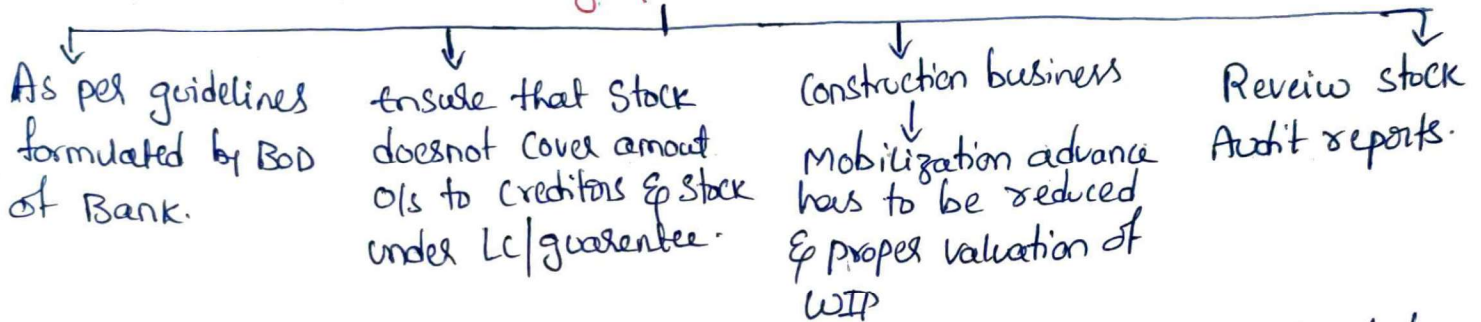 As per guidelines
formulated by BoD
of Bank.
Ensure that Stock
doesnot Cover amout
O/s to Creditors & Stock
under LC/guarentee.
Construction business
Mobilization advance
has to be reduced
& proper valuation of
WIP
Reveiw stock
Audit reports.